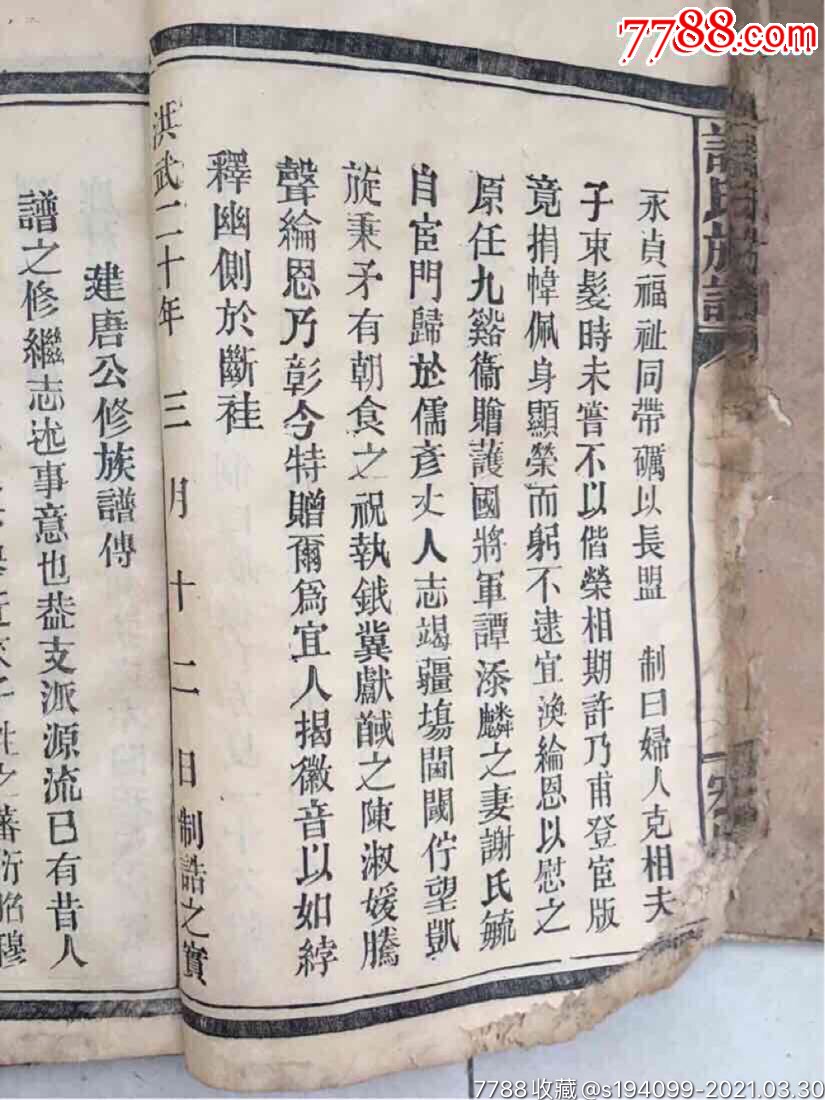 7788.com
譚氏族譜
永貞福祉同帶礪以長盟　制曰婦人克相夫
子束髮時未嘗不以偕榮相期許乃甫登宦版
竟捐幃佩身顯榮而躬不逮宜渙綸恩以慰之
原任九谿衞贈護國將軍譚添麟之妻謝氏毓
自宦門歸於儒彥丈人志竭疆場閫閾佇望凱
旋秉矛有朝食之祝執鉞冀獻馘之陳淑媛騰
聲綸恩乃彰今特贈爾為宜人揭徽音以如綍
釋幽側於斷袿
洪武二十年三月十二日制誥之寶
建唐公修族譜傳
譜之修繼志述事意也葢支派源流已有昔人
之蕃衍昭穆
7788收藏@s194099-2021.03.30